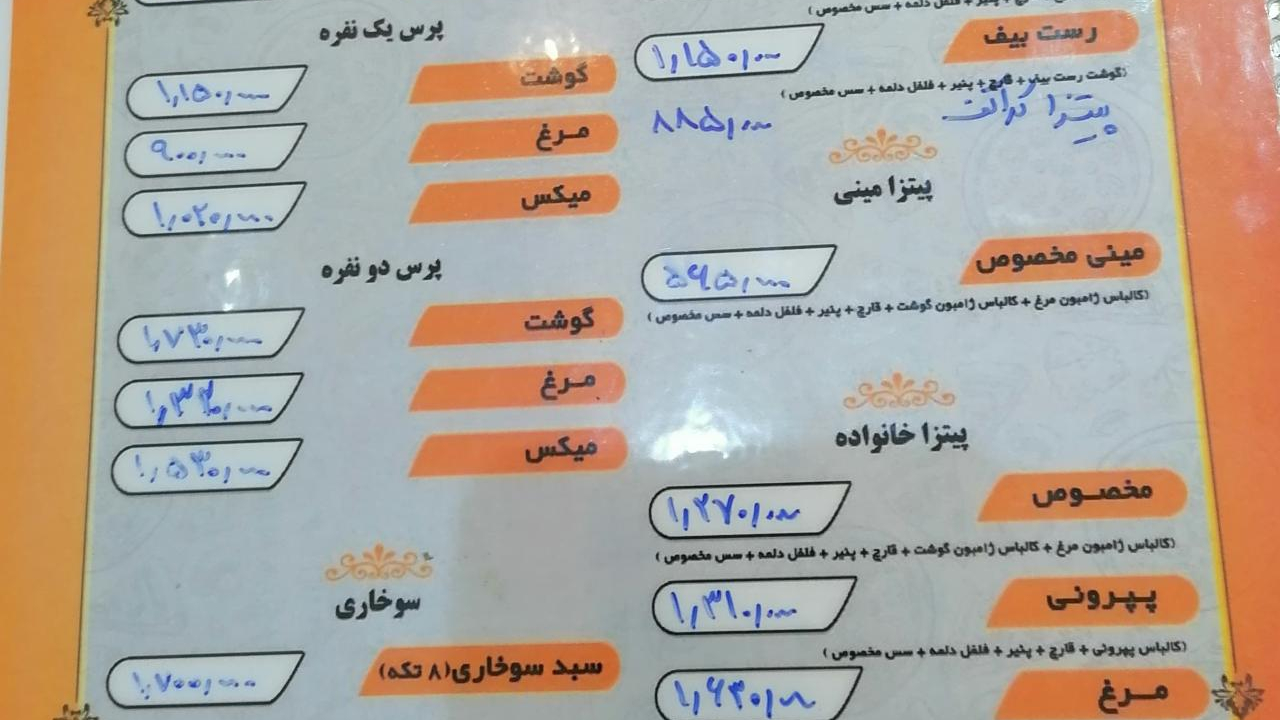 رست بیف ۱,۱۵۰,۰۰۰
(گوشت رست بیف + قارچ + پنیر + فلفل دلمه + سس مخصوص)
پیتزا کراکف ۸۸۵,۰۰۰
پیتزا مینی
مینی مخصوص ۵۹۵,۰۰۰
(کالباس ژامبون مرغ + کالباس ژامبون گوشت + قارچ + پنیر + فلفل دلمه + سس مخصوص)
پیتزا خانواده
مخصوص ۱,۲۷۰,۰۰۰
(کالباس ژامبون مرغ + کالباس ژامبون گوشت + قارچ + پنیر + فلفل دلمه + سس مخصوص)
پپرونی ۱,۳۱۰,۰۰۰
(کالباس پپرونی + قارچ + پنیر + فلفل دلمه + سس مخصوص)
مرغ
پرس یک نفره
گوشت ۱,۱۵۰,۰۰۰
مرغ ۹۰۰,۰۰۰
میکس ۱,۰۲۰,۰۰۰
پرس دو نفره
گوشت ۱,۷۳۰,۰۰۰
مرغ
میکس ۱,۵۳۰,۰۰۰
سوخاری
سبد سوخاری(۸ تکه) ۱,۷۰۰,۰۰۰